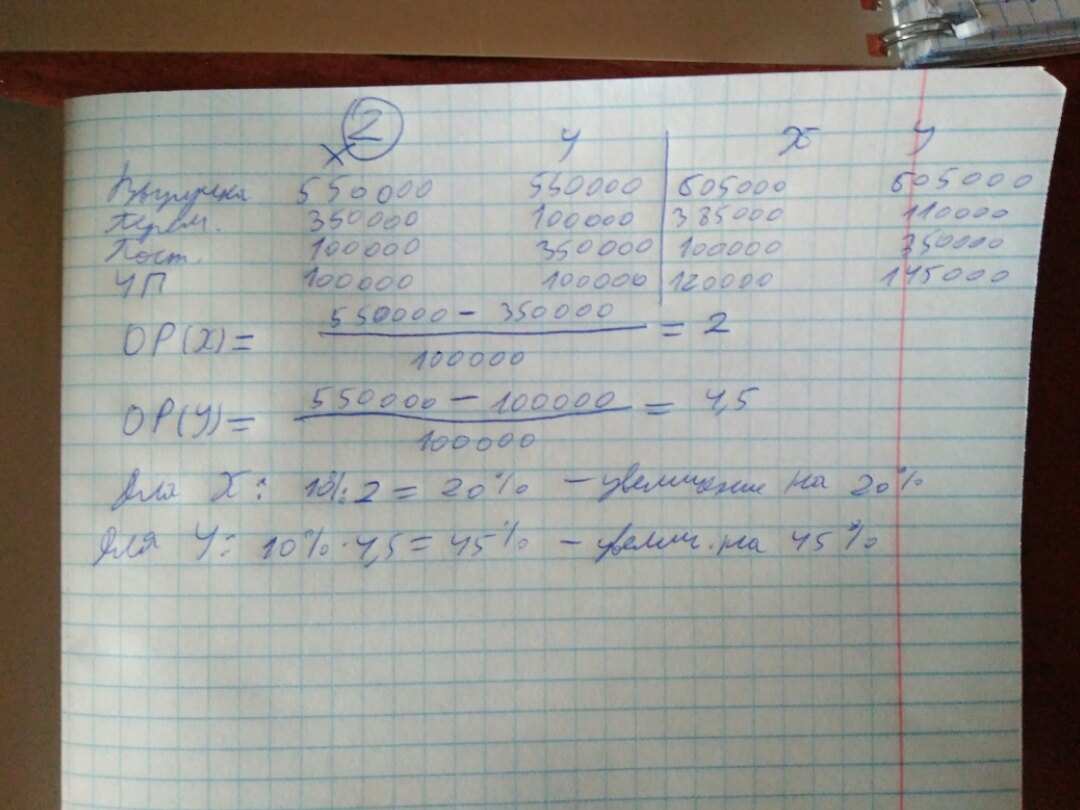 2
X У X У
Выручка 550000 550000 605000 605000
Перем. 350000 100000 385000 110000
Пост. 100000 350000 100000 350000
ЧП 100000 100000 120000 145000
ОР(X) = 550000 - 350000 / 100000 = 2
ОР(У) = 550000 - 100000 / 100000 = 4,5
Для X: 10%·2 = 20% - увеличение на 20%
Для У: 10%·4,5 = 45% - увелич. на 45%